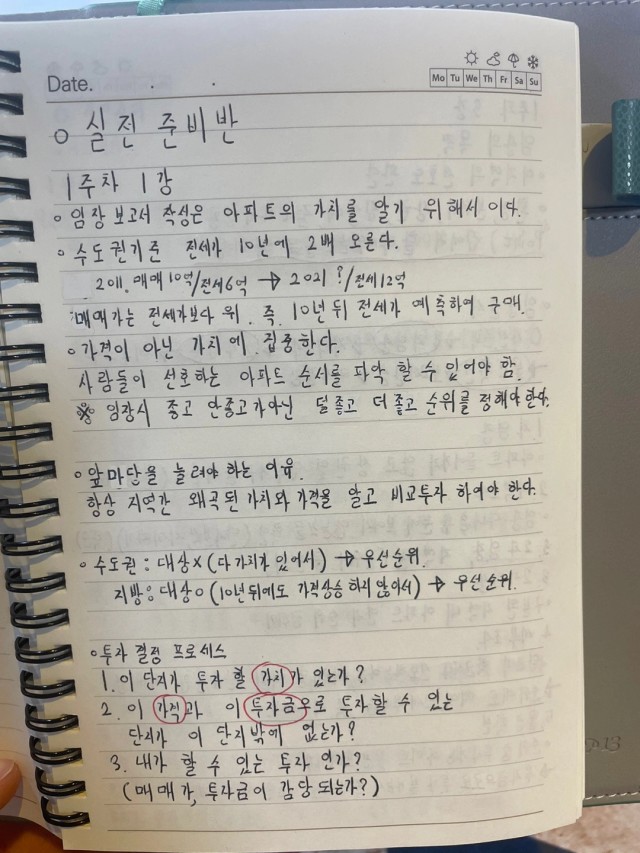 Date.
Mo Tu We Th Fr Sa Su
○ 실전 준비반
1주차 1강
○ 임장 보고서 작성은 아파트의 가치를 알기 위해서 이다.
○ 수도권기준 전세가 10년에 2배 오른다.
매매 10억/전세6억 → 2021 ?/전세12억
매매가는 전세가보다 위. 즉. 10년뒤 전세가 예측하여 구매.
○ 가격이 아닌 가치에 집중한다.
사람들이 선호하는 아파트 순서를 파악 할 수 있어야 함.
※ 임장시 좋고 안좋고가아닌 덜좋고 더좋고 순위를 정해야한다.
○ 앞마당을 늘려야 하는 이유.
항상 지역간 왜곡된가치와 가격을 알고 비교투자 하여야 한다.
○ 수도권 : 대상× (다가치가 있어서) → 우선순위.
지방 : 대상○ (10년뒤에도 가격상승 하지않아서) → 우선순위.
○ 투자 결정 프로세스
1. 이 단지가 투자 할 가치가 있는가?
2. 이 가격과 이 투자금으로 투자할 수 있는
단지가 이 단지밖에 없는가?
3. 내가 할 수 있는 투자 인가?
(매매가, 투자금이 감당 되는가?)